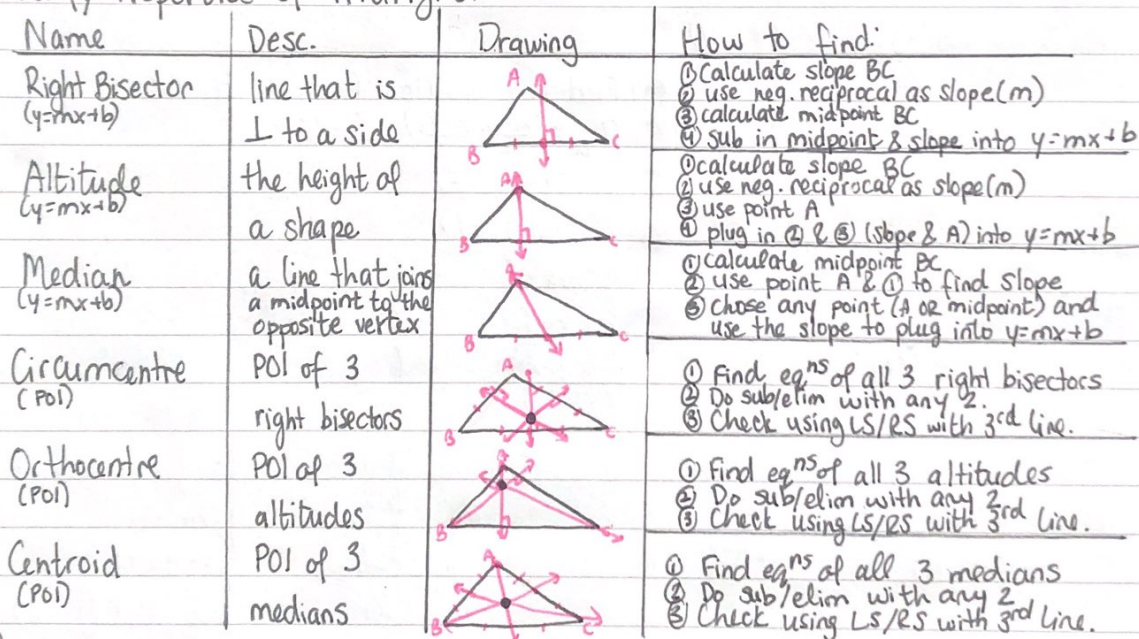 Properties of
Name Desc. Drawing How to find:
Right Bisector
(y=mx+b)
line that is
⊥ to a side
A
B C
① Calculate slope BC
② use neg. reciprocal as slope(m)
③ calculate midpoint BC
④ sub in midpoint & slope into y=mx+b
Altitude
(y=mx+b)
the height of
a shape
A
B C
① calculate slope BC
② use neg. reciprocal as slope(m)
③ use point A
④ plug in ② & ③ (slope & A) into y=mx+b
Median
(y=mx+b)
a line that joins
a midpoint to the
opposite vertex
A
B C
① calculate midpoint BC
② use point A & ① to find slope
③ Chose any point (A OR midpoint) and
use the slope to plug into y=mx+b
Circumcentre
(POI)
POI of 3
right bisectors
A
B C
① Find eqⁿˢ of all 3 right bisectors
② Do sub/elim with any 2.
③ Check using LS/RS with 3rd line.
Orthocentre
(POI)
POI of 3
altitudes
B
① Find eqⁿˢ of all 3 altitudes
② Do sub/elim with any 2
③ Check using LS/RS with 3rd line.
Centroid
(POI)
POI of 3
medians
A
B C
① Find eqⁿˢ of all 3 medians
② Do sub/elim with any 2
③ Check using LS/RS with 3rd line.